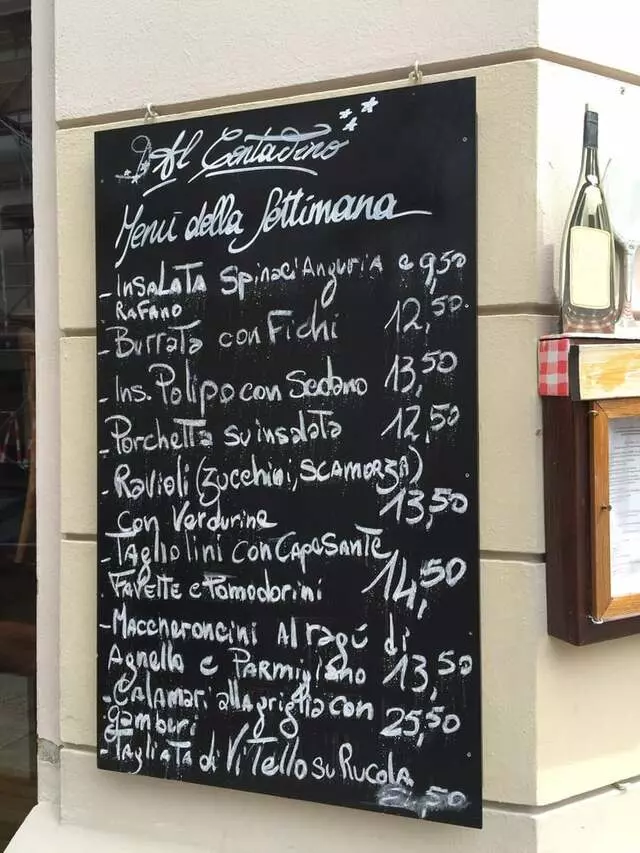 Al Contadino
Menù della Settimana
- Insalata Spinaci Anguria e 9,50
Rafano
- Burrata con Fichi 12,50
- Ins. Polipo con Sedano 13,50
- Porchetta su insalata 12,50
- Ravioli (zucchini, scamorza)
con Verdurine 13,50
- Tagliolini con Capesante
Favette e Pomodorini 14,50
- Maccheroncini al ragù di
Agnello e Parmigiano 13,50
- Calamari alla griglia con
gamberi 25,50
- Tagliata di Vitello su Rucola